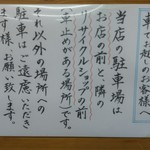 車でお越しのお客様へ
当店の駐車場は
お店の前と、隣の
リサイクルショップの前
(車止めがある場所)です。
それ以外の場所への
駐車はご遠慮いただき
ます様お願い致します。